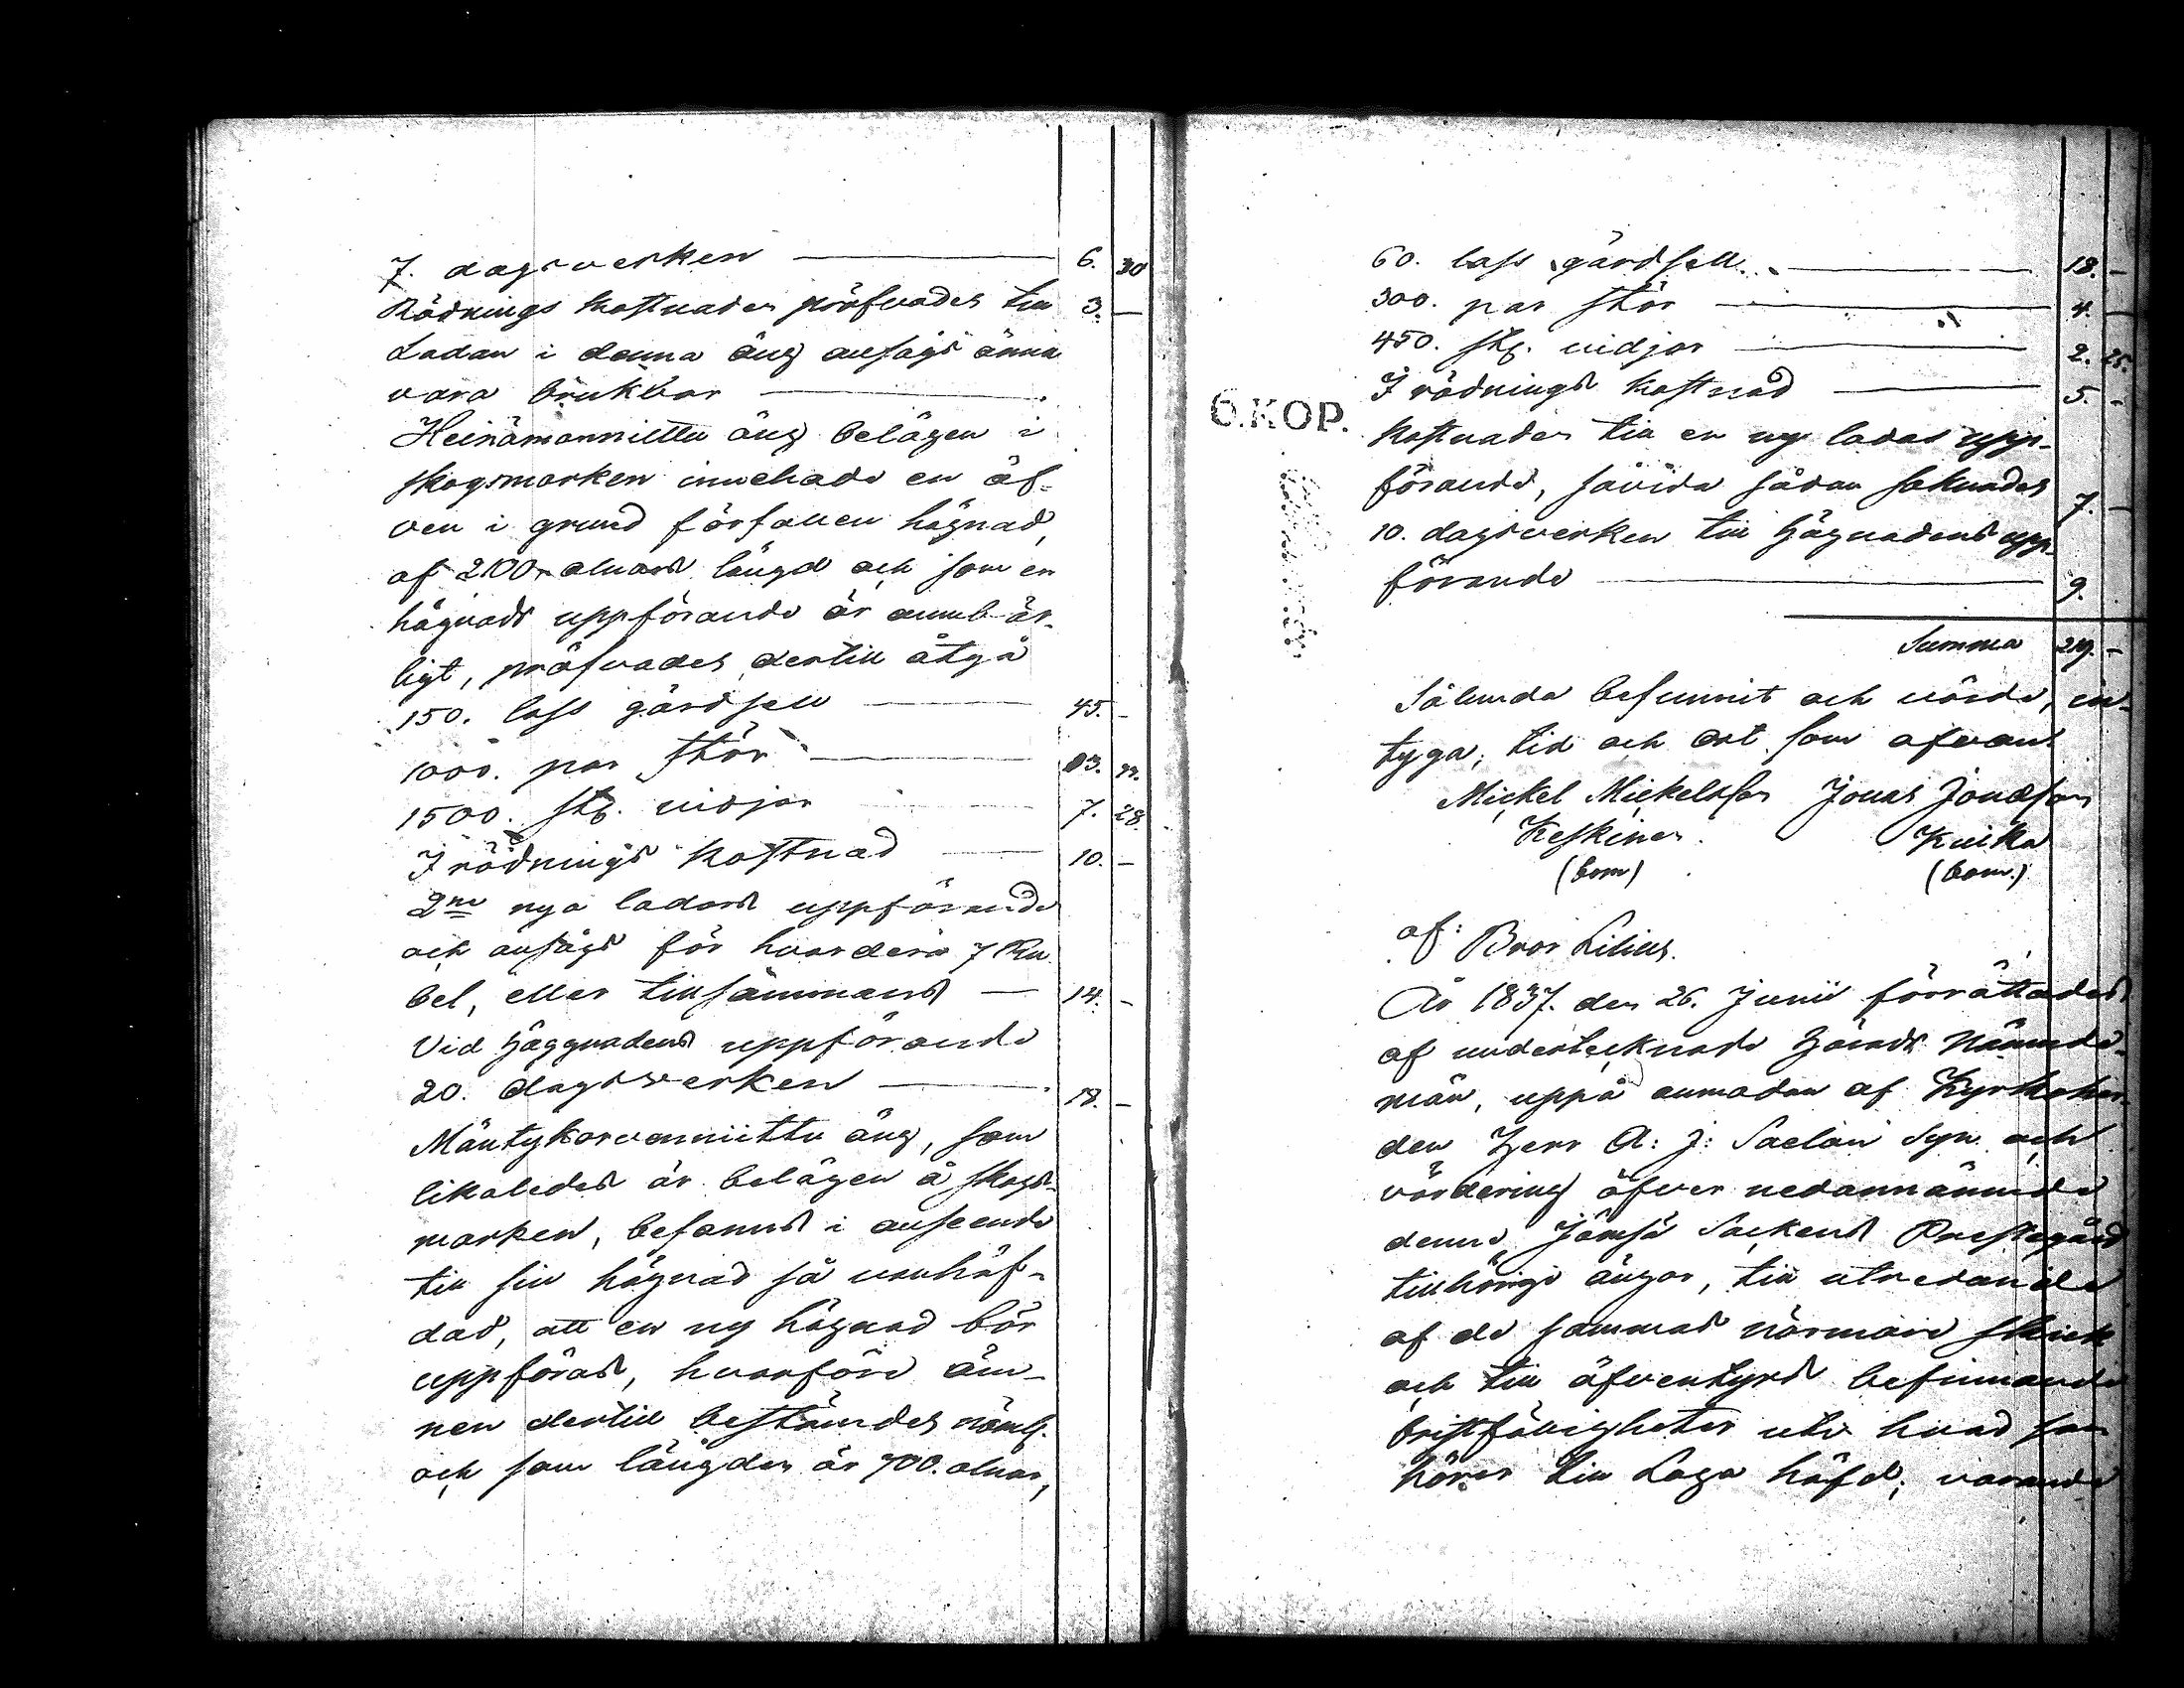 7. dagsverken — 6. 30
Rödnings kostnaden pröfvades till 3. —
Ladan i denna äng ansågs ännu
vara brukbar —
Heinämanniittu äng belägen i
skogsmarken innehade en äf-
ven i grund förfallen hägnad,
af 2100 alnars längd och som en
hägnads uppförande är oumbär-
ligt, pröfvades dertill åtgå
150. lass gärdsell — 45. —
1000. par stör — 13.
1500. stk. vidjor 7. 28.
I rödnings kostnad — 10. —
2ne nya ladors uppförande
och ansågs för hvardera 7 Ru
bel, eller tillsammans — 14. —
Vid Häggnadens uppförande
20. dagsverken — 18. —
Mäntykorvenniittu äng, som
likaledes är belägen å skogs-
marken, befanns i anseende
till sin hägnad så vanhäf-
dad, att en ny hägnad bör
uppföras, hvarföre äm-
nen dertill bestämdes näml.
och som längden är 700. alnar,
60. lass gärdsell. — 18. —
300. par stör — 4. —
450. stk. vidjor — 2. 25.
I rödnings kostnad — 5. —
6.KOP.
Kostnaden till en ny ladas upp-
förande, såvida sådan saknades 7. —
10. dagsverken till Hägnadens upp-
förande — 9.
Summa 219. —
Sålunda befunnit och värde, in-
tyga; tid och ort som ofvan.
Mickel Mickelsson Jonas Jonasson
Keskinen. Kuikka
(bom) (bom.)
af: Bror Lilius.
År 1837. den 26. Junii förrättades
af undertecknade Härads Nämnde-
män, uppå anmodan af Kyrkoher-
den Herr A: J: Saelan Syn och
värdering öfver nedannämnde
denne Jämsä Sockens Prestegård
tillhörige ängor, till utredande
af de sammas närmare skick
och till äfventyrs befinnande
bristfälligheter uti hvad som
hörer till Laga häfd; varande